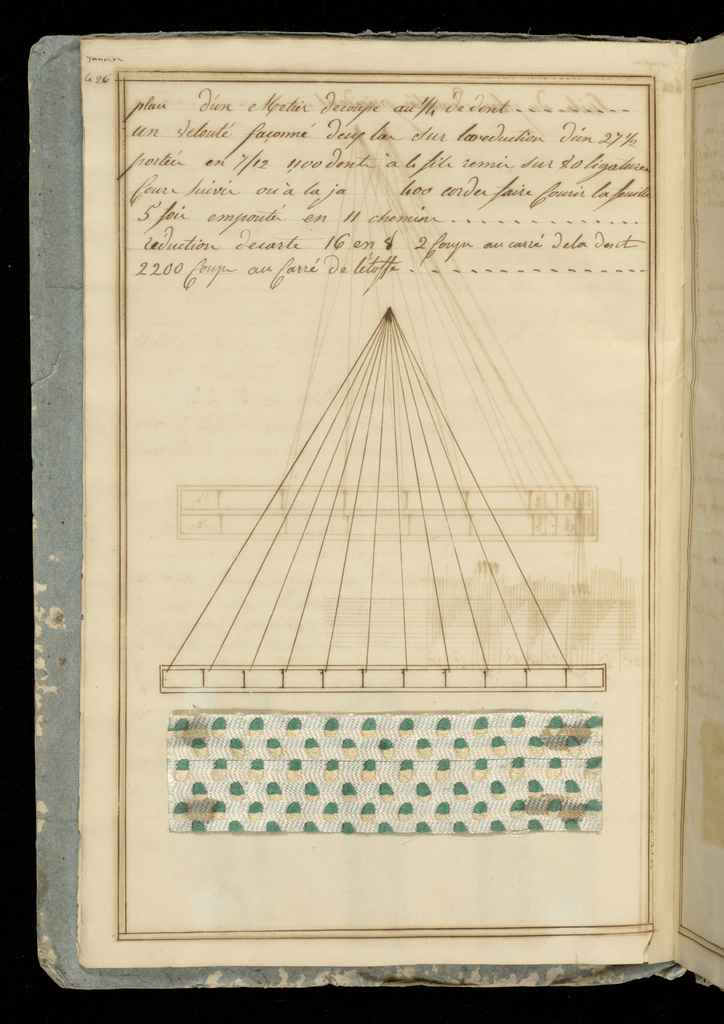 janvier
426
plan d'un Metier decoupé au ¼ de dent
un velouté façonné deux lac sur la reduction d'un 27 ½
portée en 7/12 1,100 dents à le file remis sur 80 ligature
Course suivie ou à la ja 400 cordes faire Courir la feuille
5 fois empouté en 11 chemin
reduction de carte 16 en 8 2 Coups au carré de la dent
2200 Coups au Carré de l'étoffe